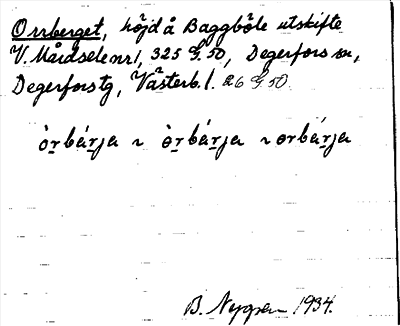 Orrberget, höjd å Baggböle utskifte
V. Mårdsele nr 1, 325 G. 50, Degerfors sn,
Degerfors tg, Västerb. l. 26 G. 50
òrbárja ~ òrbárja ~ orbárja
B. Nygren 1934.